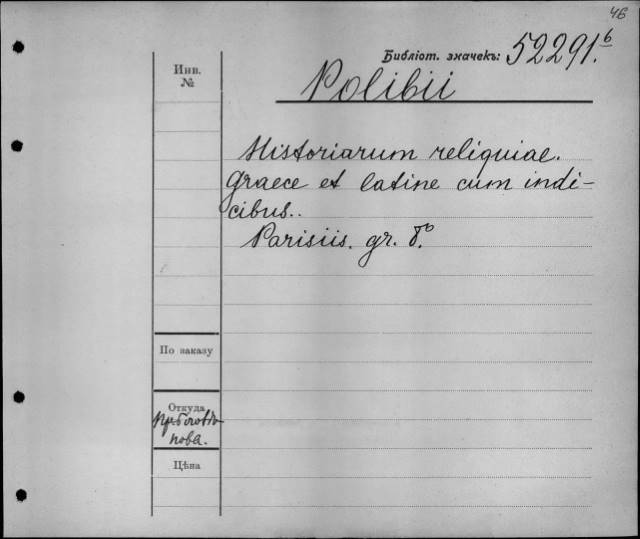 46
Библіот. значекъ: 52291.б
Инв.
№
Polibii
Historiarum reliquiae.
Graece et latine cum indi-
cibus..
Parisiis. gr. 8°.
По заказу
Откуда
нова.
Цѣна